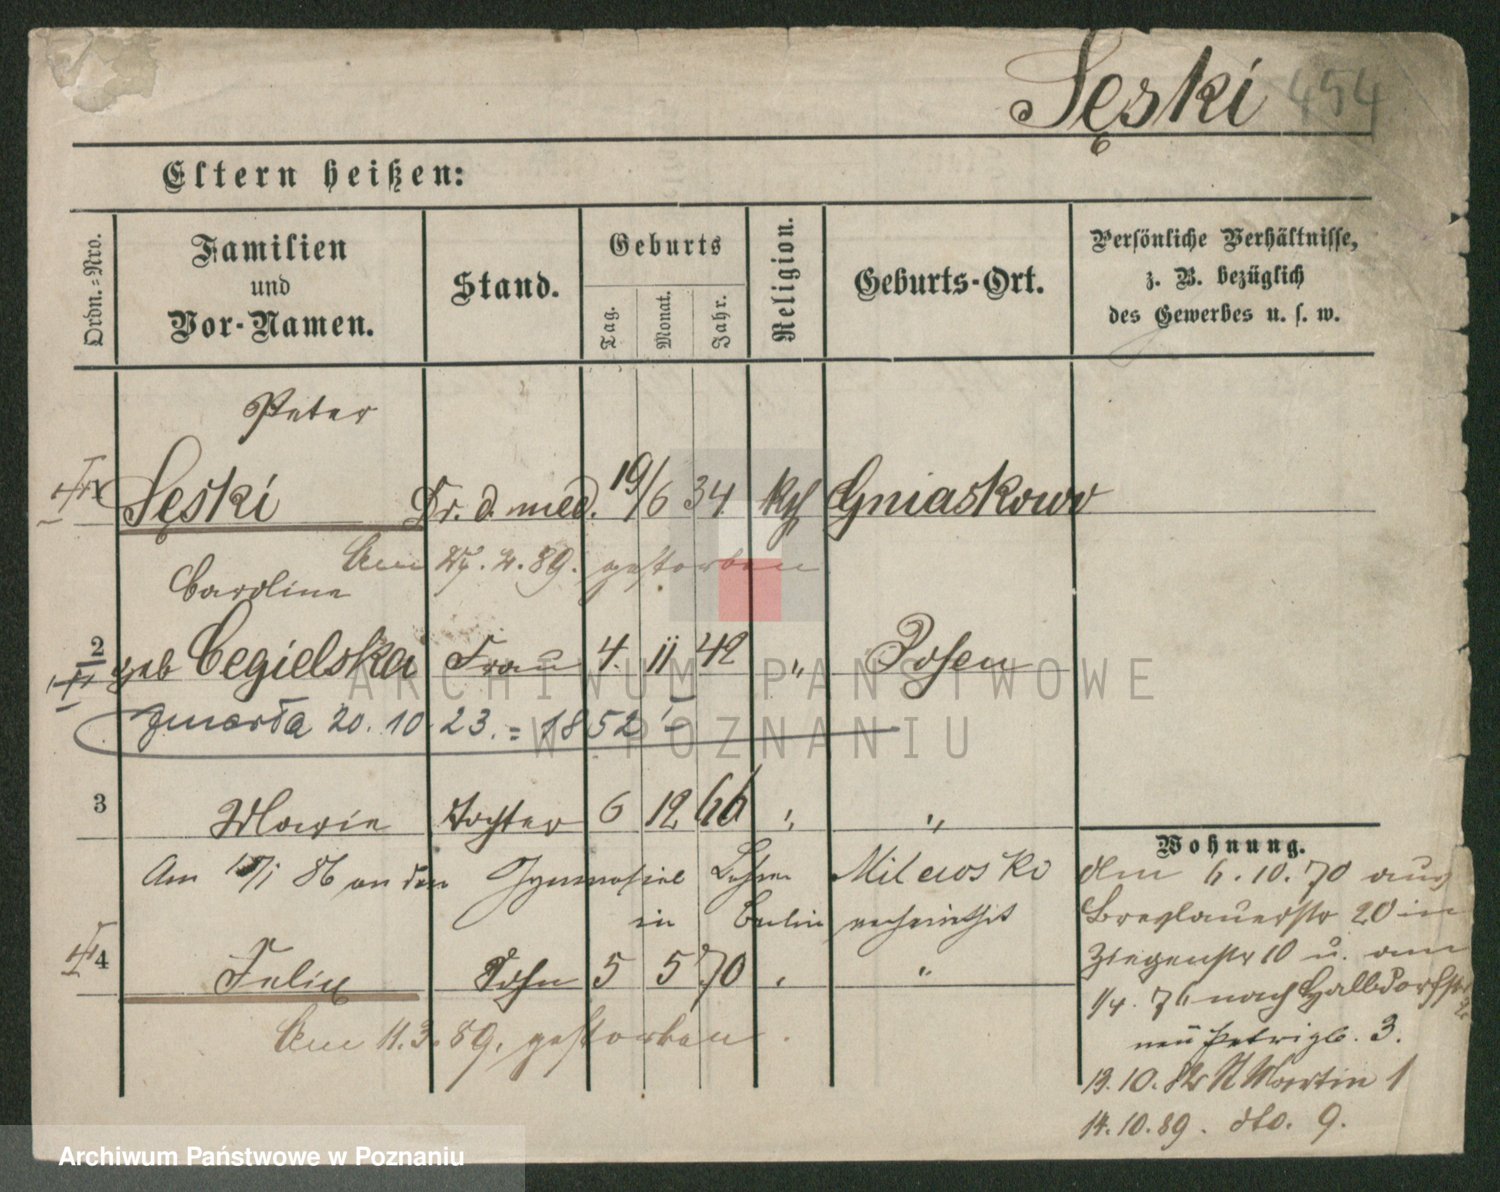 Sęski 454
Eltern heißen:
Ordn.-Nro.
Familien
und
Vor-Namen.
Stand.
Geburts
Tag.
Monat.
Jahr.
Religion.
Geburts-Ort.
Persönliche Verhältnisse,
z. B. bezüglich
des Gewerbes u. s. w.
Peter
1 Sęski Dr. d. med. 19/6 34 kth Gniaskowo
Am 27. 2. 89. gestorben
Caroline
2 geb Cegielska Frau 4. 11 42 " Posen
zmarła 20. 10 23. = 1852
3 Marie Tochter 6 12 66 " "
Am /1 86 an den Gymnasial Lehrer Milewski
in Berlin verheirathet
4 Felix Sohn 5 5 70 " "
Am 11. 3. 89. gestorben.
Wohnung.
Am 6. 10. 70 aus
Breslauerstr 20 in
Ziegenstr 10 u. am
1/4. 76 nach Halbdorfstr 2.
neu Petriplb. 3.
13. 10. 82 St Martin 1
14. 10. 89. dto. 9.
ARCHIWUM PAŃSTWOWE
W POZNANIU
Archiwum Państwowe w Poznaniu